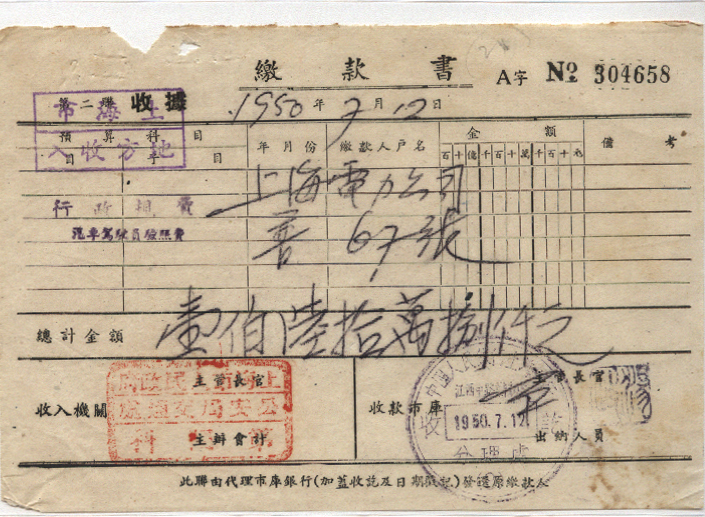 繳款書
A字 № 304658
第二聯 收據
1950年7月12日
上海市
地方收入
預算科目
項目
年月份
繳款人戶名
金額
百十億千百十萬千百十元
備考
行政規費
汽車駕駛員驗照費
上海電力公司
67張
總計金額
壹佰陸拾萬捌仟元
收入機關
主管長官
主辦會計
收款市庫
主管長官
出納人員
上海市人民政府
公安局交通處
中國人民
1950.7.12
收訖
分理處
此聯由代理市庫銀行(加蓋收訖及日期戳記)發還原繳款人